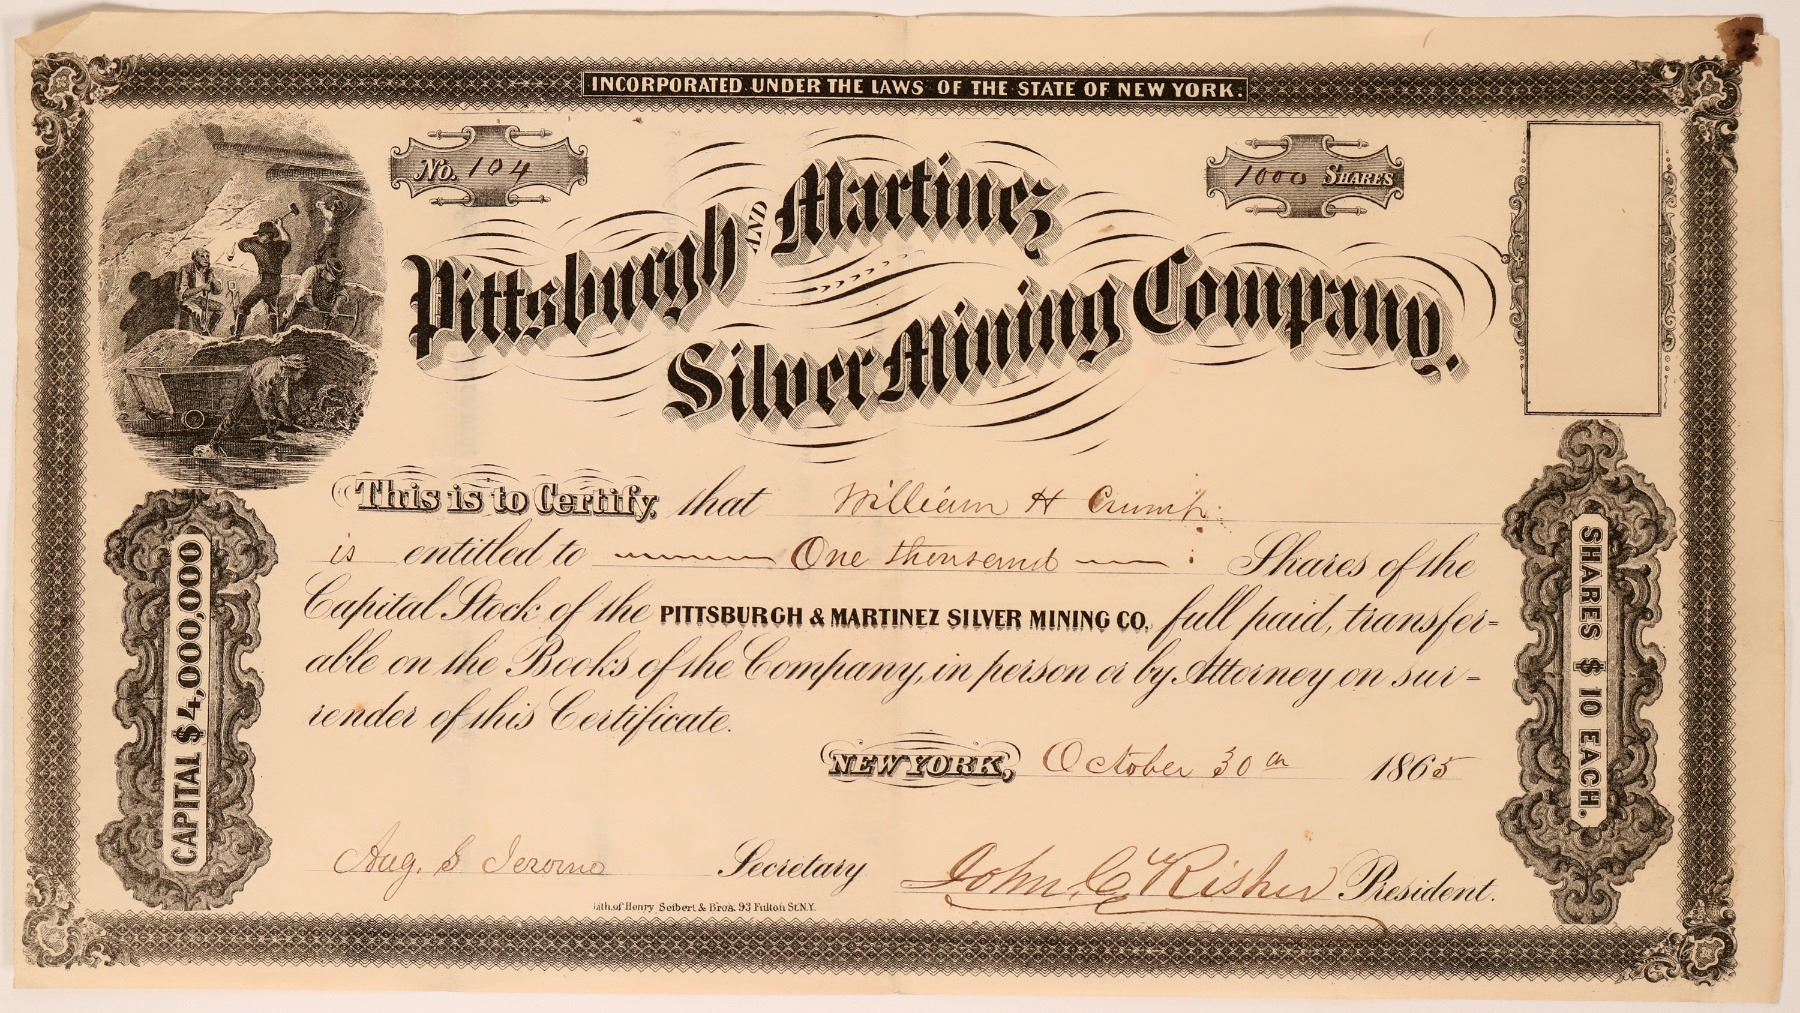 INCORPORATED UNDER THE LAWS OF THE STATE OF NEW YORK.
No. 104
1000 SHARES
Pittsburgh AND Martinez
Silver Mining Company.
This is to Certify, that William H Crump
is entitled to One thousand Shares of the
Capital Stock of the PITTSBURGH & MARTINEZ SILVER MINING CO. full paid, transfer=
able on the Books of the Company, in person or by Attorney on sur=
render of this Certificate.
NEW YORK, October 30th 1865
Aug. S Jerome Secretary
John C Risher President.
Lith. of Henry Seibert & Bros. 93 Fulton St. N.Y.
CAPITAL $4,000,000
SHARES $10 EACH.